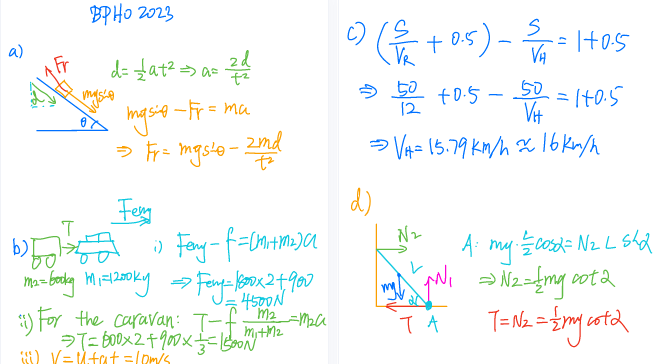 BPHO 2023
a)
Fr
d
mgsinθ
θ
d = ½at² ⇒ a = 2d/t²
mgsinθ − Fr = ma
⇒ Fr = mgsinθ − 2md/t²
b)
T
Feng
m₂=600kg m₁=1200kg
i) Feng − f = (m₁+m₂)a
⇒ Feng = 1800×2+900
= 4500N
ii) For the caravan: T − f m₂/(m₁+m₂) = m₂a
⇒ T = 600×2 + 900×⅓ = 1500N
iii) V = u + at = 10m/s
c) (S/V_R + 0.5) − S/V_H = 1+0.5
⇒ 50/12 + 0.5 − 50/V_H = 1+0.5
⇒ V_H = 15.79 km/h ≈ 16 km/h
d)
N₂
L
mg
N₁
α
T A
A: mg·L/2 cosα = N₂ L sinα
⇒ N₂ = ½mg cotα
T = N₂ = ½mg cotα